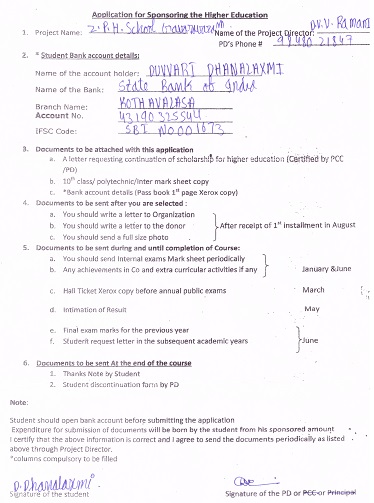 Application for Sponsoring the Higher Education
1. Project Name: Z.P.H. School Name of the Project Director: D.V.V. Ramani
PD's Phone # 98480 21847
2. * Student Bank account details:
Name of the account holder: DUVVARI DHANALAXMI
Name of the Bank: State Bank of India
Branch Name: KOTHAVALASA
Account No. 43190325544
IFSC Code: SBI N0001673
3. Documents to be attached with this application
a. A letter requesting continuation of scholarship for higher education (Certified by PCC /PD)
b. 10th class/ polytechnic/Inter mark sheet copy
c. *Bank account details (Pass book 1st page Xerox copy)
4. Documents to be sent after you are selected :
a. You should write a letter to Organization
b. You should write a letter to the donor After receipt of 1st installment in August
c. You should send a full size photo
5. Documents to be sent during and until completion of Course:
a. You should send Internal exams Mark sheet periodically
b. Any achievements in Co and extra curricular activities if any January &June
c. Hall Ticket Xerox copy before annual public exams March
d. Intimation of Result May
e. Final exam marks for the previous year
f. Student request letter in the subsequent academic years June
6. Documents to be sent At the end of the course
1. Thanks Note by Student
2. Student discontinuation form by PD
Note:
Student should open bank account before submitting the application
Expenditure for submission of documents will be born by the student from his sponsored amount
I certify that the above information is correct and I agree to send the documents periodically as listed
above through Project Director.
*columns compulsory to be filled
D. Dhanalaxmi
Signature of the student Signature of the PD or PCC or Principal